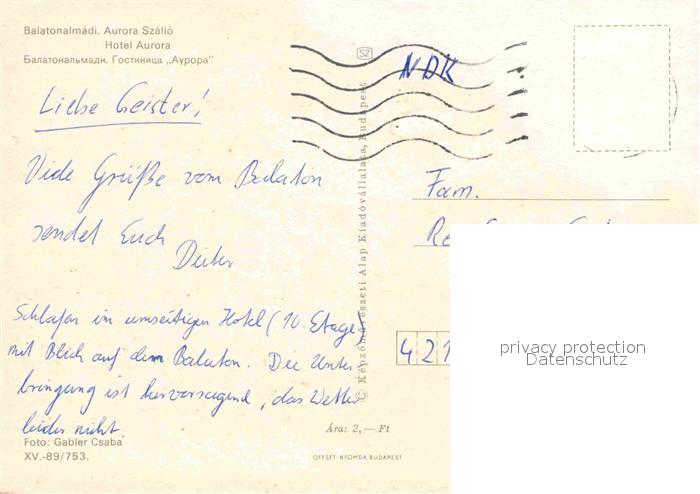 Balatonalmádi. Aurora Szálló
Hotel Aurora
Балатональмади. Гостиница „Аурора"
Liebe Geister!
Viele Grüße vom Balaton
sendet Euch
Dieter
Schlafen im umseitigen Hotel (10. Etage
mit Blick auf dem Balaton. Die Unter
bringung ist hervorragend, das Wetter
leider nicht.
Foto: Gabler Csaba
XV.-89/753.
© Képzőművészeti Alap Kiadóvállalata, Budapest
SZ
NDK
Fam.
421
privacy protection
Datenschutz
Ára: 2,— Ft
OFFSET-NYOMDA, BUDAPEST